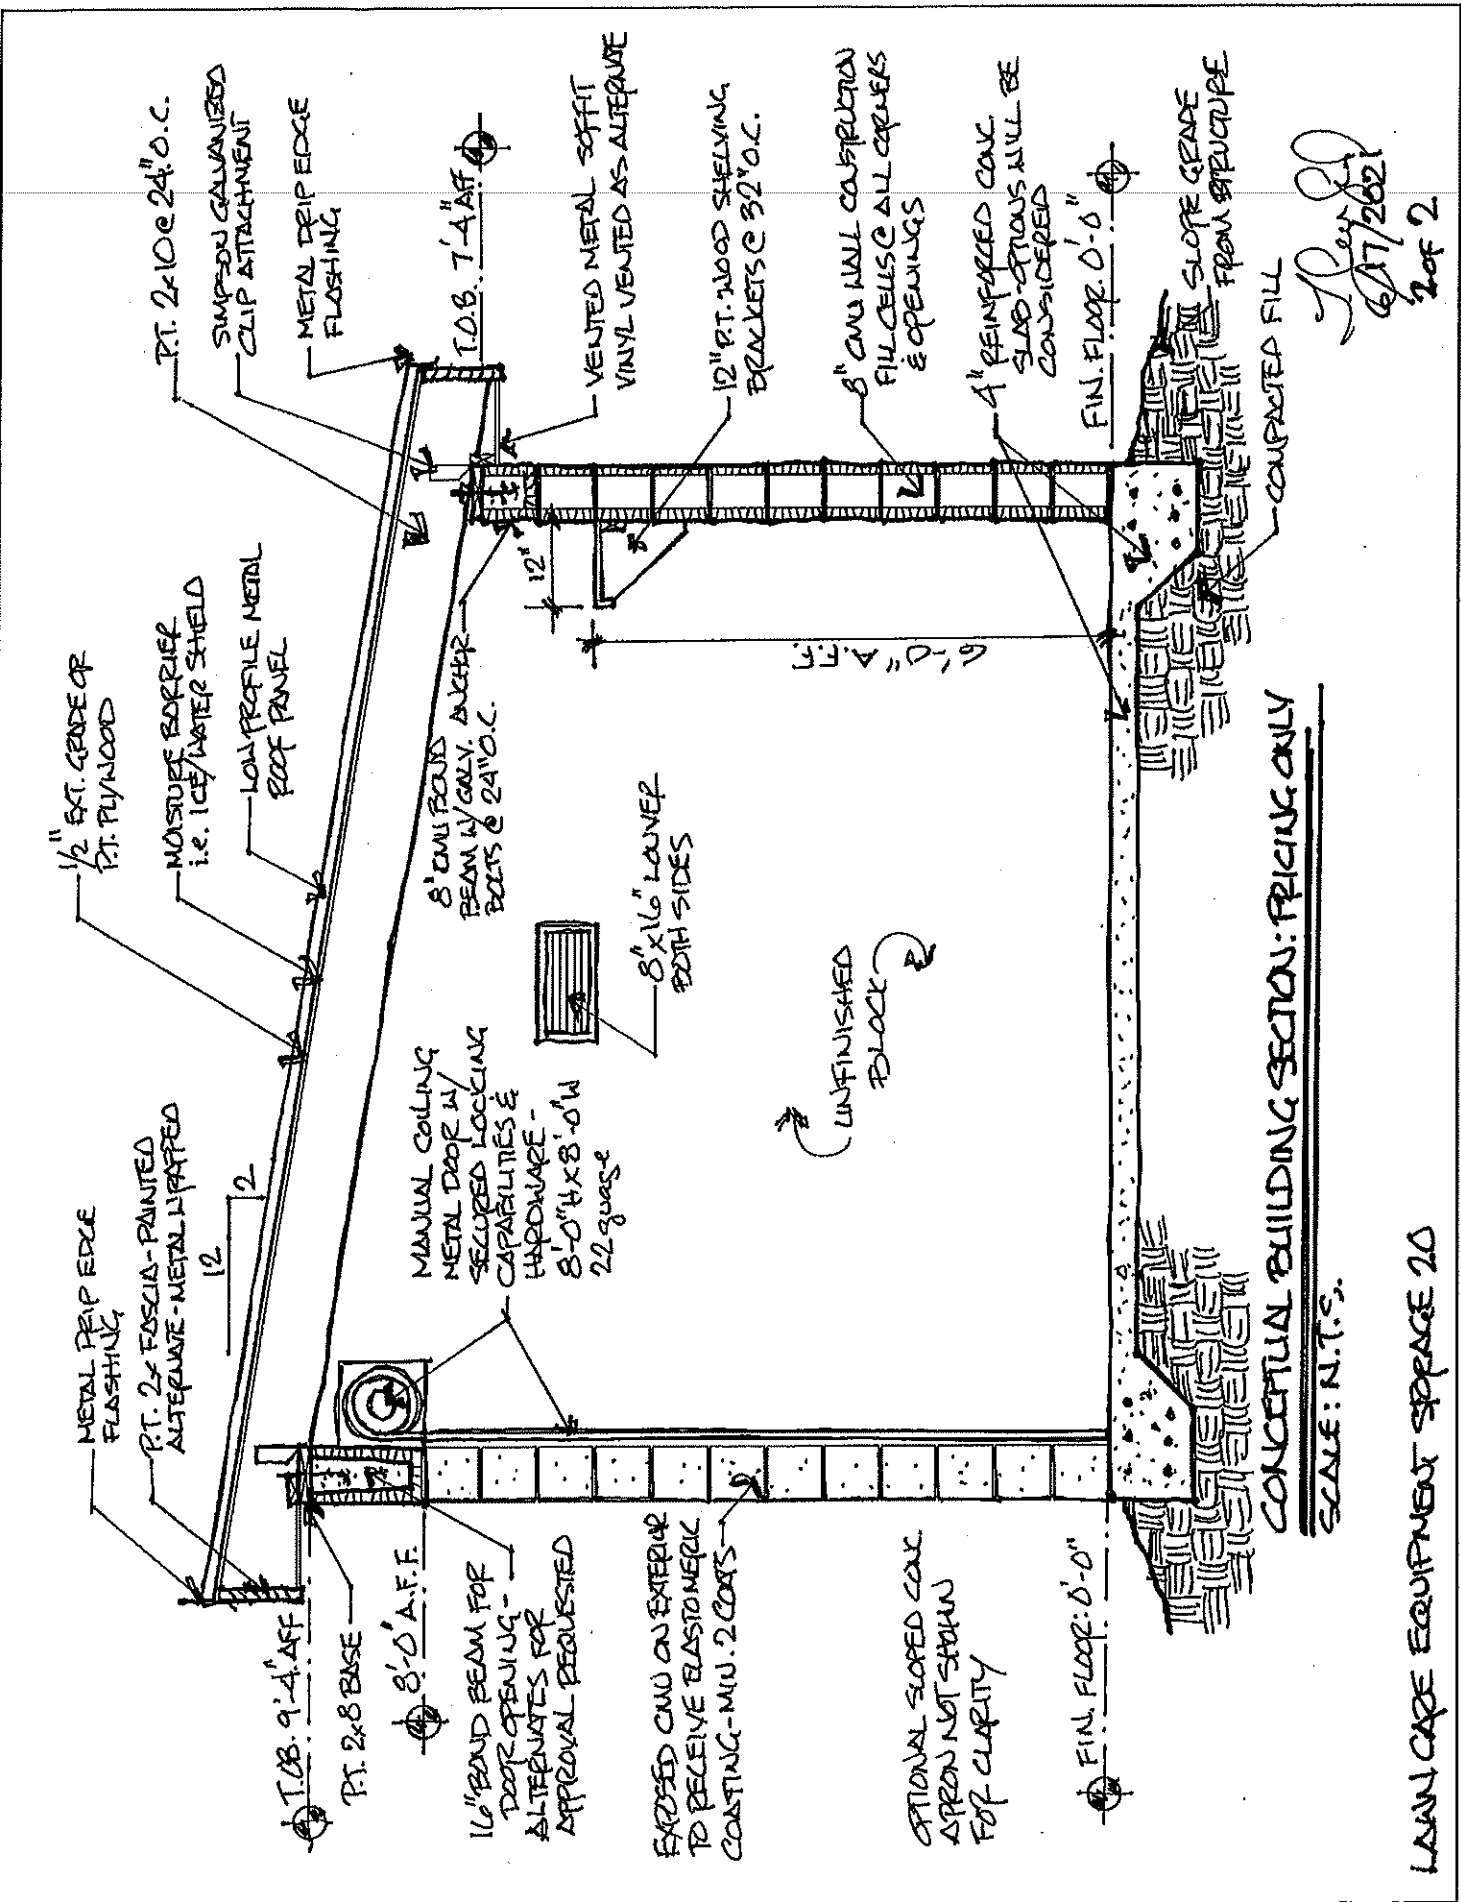 METAL DRIP EDGE
FLASHING
P.T. 2x FASCIA-PAINTED
ALTERNATE-METAL WRAPPED
12
2
1/2" EXT. GRADE OR
P.T. PLYWOOD
MOISTURE BARRIER
i.e. ICE/WATER SHIELD
LOW PROFILE METAL
ROOF PANEL
P.T. 2x10 @ 24" O.C.
SIMPSON GALVANIZED
CLIP ATTACHMENT
METAL DRIP EDGE
FLASHING
T.O.B. 7'-4" AFF
VENTED METAL SOFFIT
VINYL VENTED AS ALTERNATE
12" P.T. WOOD SHELVING
BRACKETS @ 32" O.C.
8" CMU WALL CONSTRUCTION
FILL CELLS @ ALL CORNERS
& OPENINGS
4" REINFORCED CONC.
SLAB-OPTIONS WILL BE
CONSIDERED
FIN. FLOOR 0'-0"
SLOPE GRADE
FROM STRUCTURE
COMPACTED FILL
T.O.B. 9'-4" AFF
P.T. 2x8 BASE
8'-0" A.F.F.
16" BOND BEAM FOR
DOOR OPENING -
ALTERNATES FOR
APPROVAL REQUESTED
EXPOSED CMU ON EXTERIOR
TO RECEIVE ELASTOMERIC
COATING-MIN. 2 COATS
OPTIONAL SLOPED CONC.
APRON NOT SHOWN
FOR CLARITY
FIN. FLOOR: 0'-0"
MANUAL COILING
METAL DOOR W/
SECURED LOCKING
CAPABILITIES &
HARDWARE -
8'-0"H x 8'-0"W
22 guage
8" CMU BOND
BEAM W/ GALV. ANCHOR
BOLTS @ 24" O.C.
12"
8"x16" LOUVER
BOTH SIDES
6'-0" A.F.F.
UNFINISHED
BLOCK
CONCEPTUAL BUILDING SECTION: PRICING ONLY
SCALE: N.T.S.
LAWN CARE EQUIPMENT STORAGE 20
6/17/2021
2 OF 2